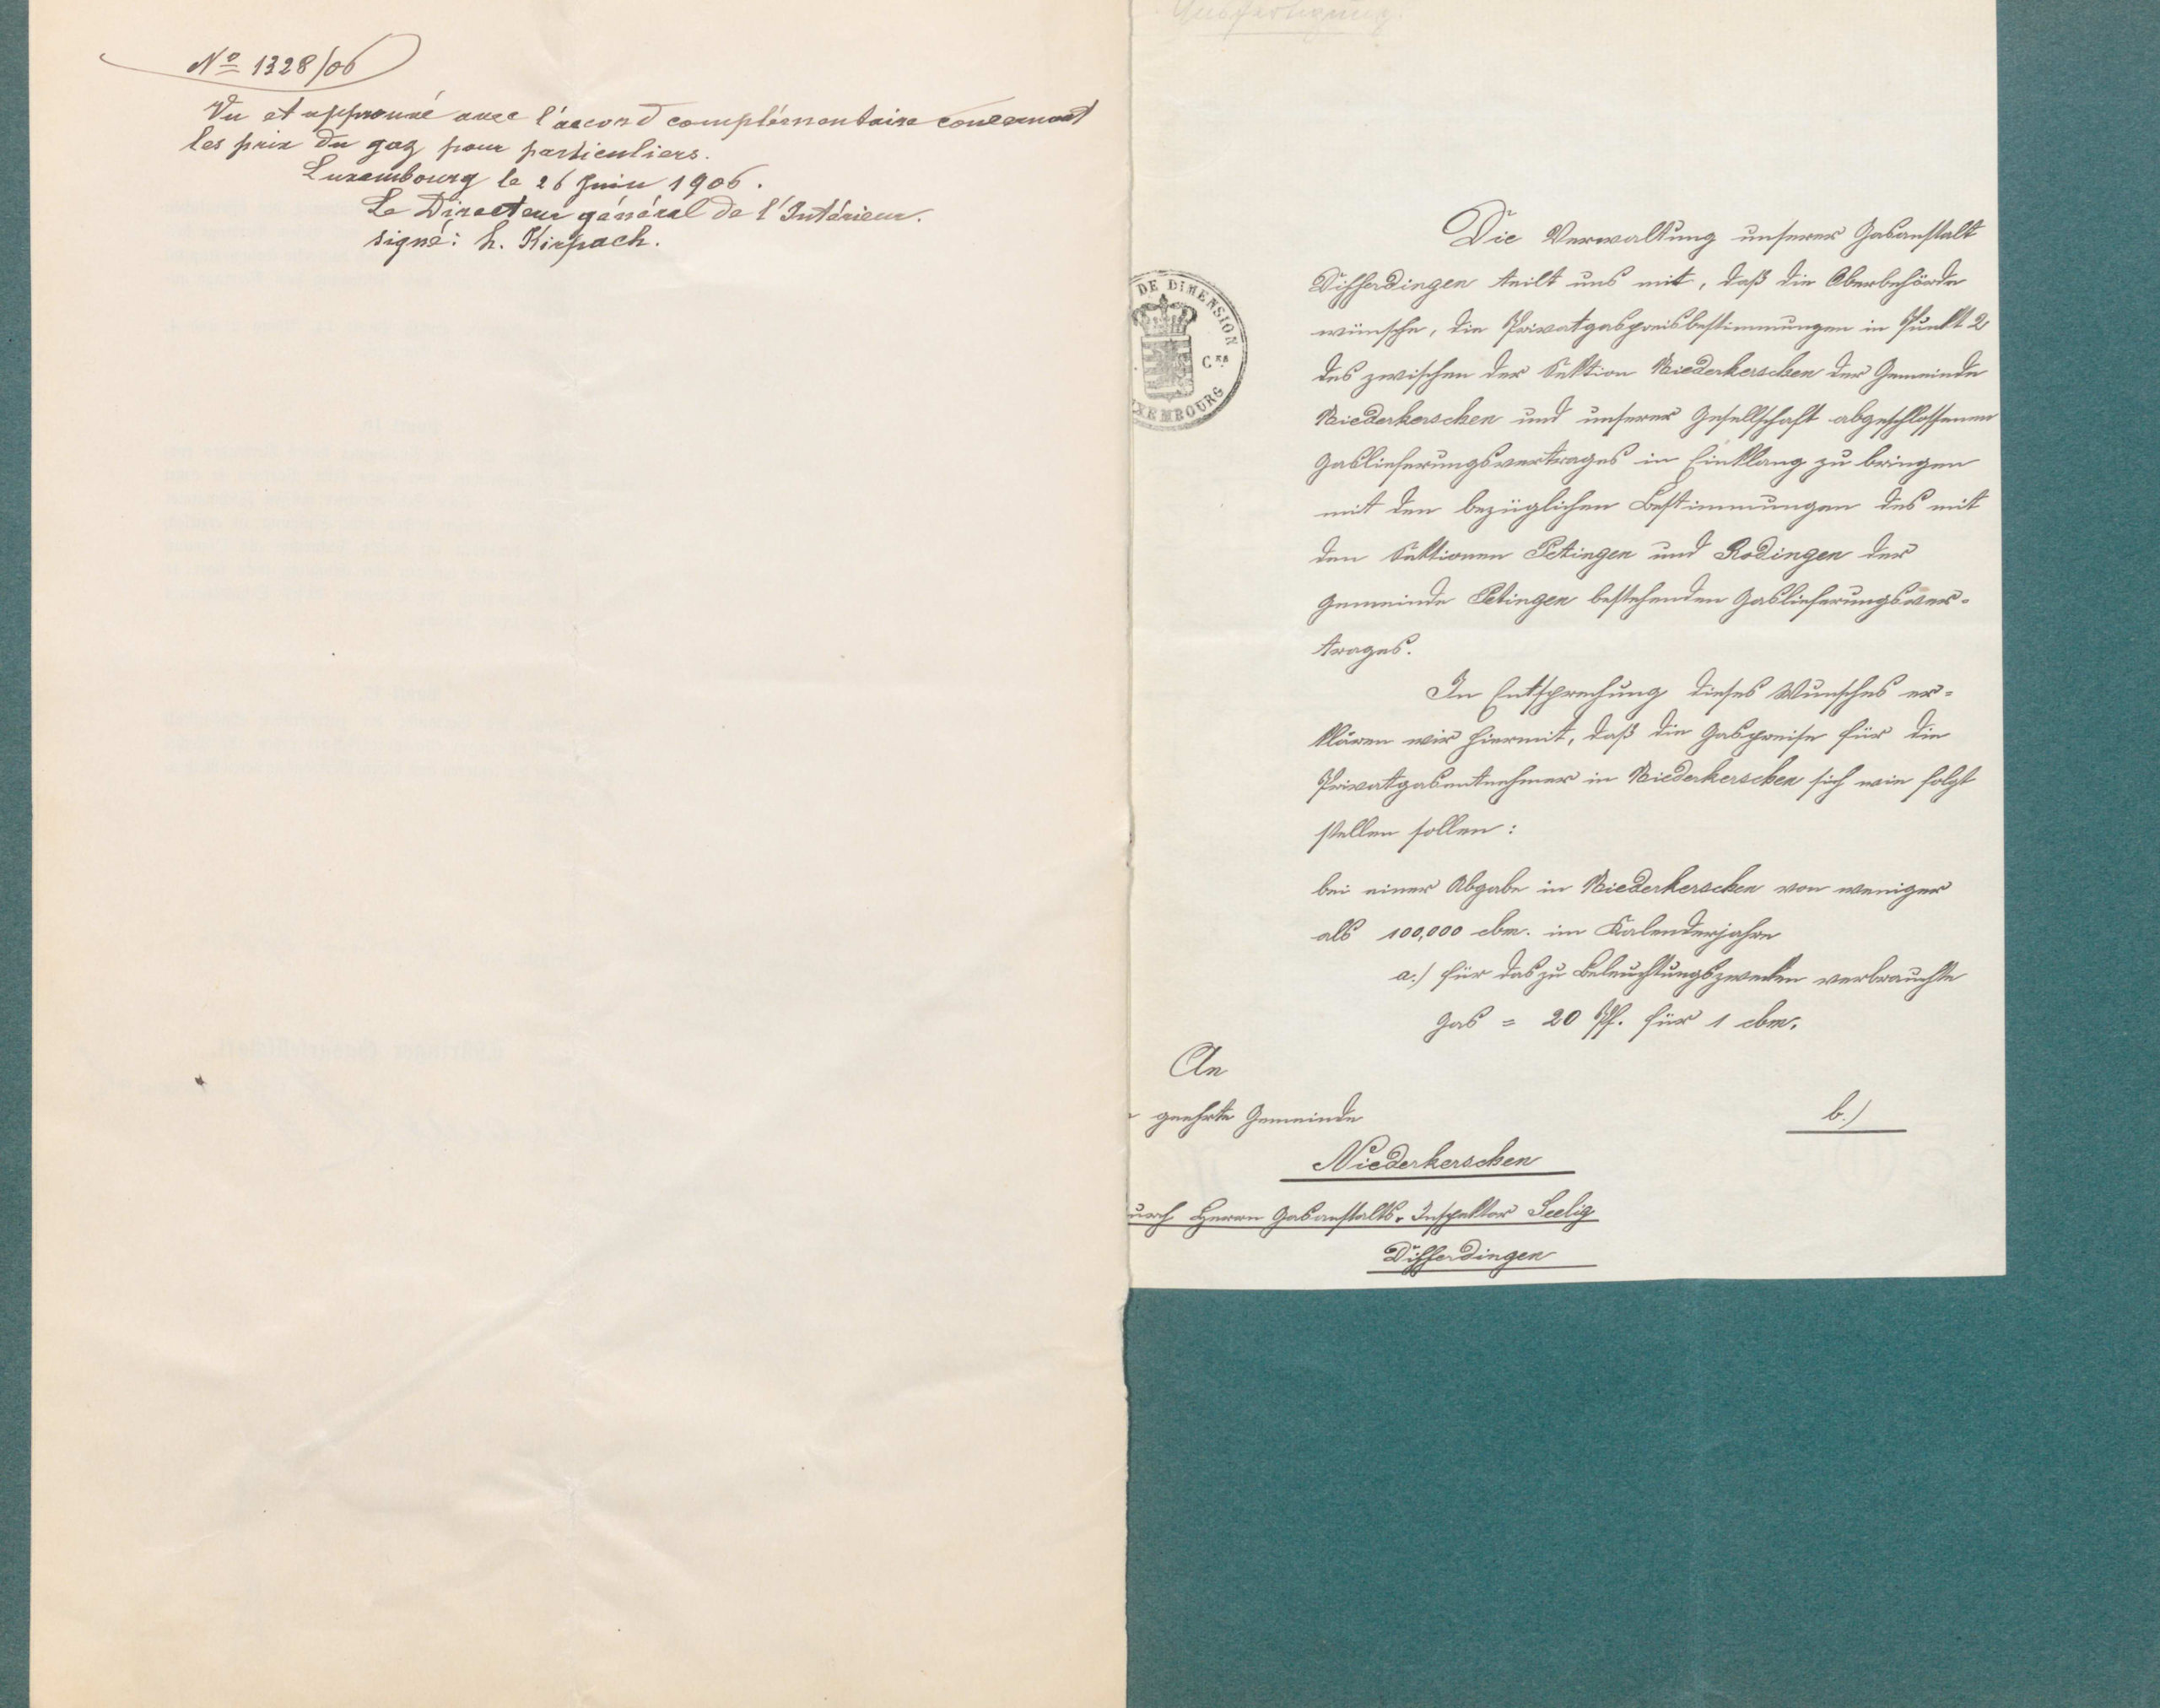 Nº 1328/06
Vu et approuvé avec l'accord complémentaire concernant
les prix du gaz pour particuliers.
Luxembourg le 26 Juin 1906.
Le Directeur général de l'Intérieur.
signé: h. Kirpach.
Ausfertigung.
DE DIMENSION
CES
UXEMBOURG
Die Verwaltung unserer Gasanstalt
Differdingen teilt uns mit, daß die Oberbehörde
wünsche, die Privatgaspreisbestimmungen in Punkt 2
des zwischen der Sektion Niederkerschen der Gemeinde
Niederkerschen und unserer Gesellschaft abgeschlossenen
Gaslieferungsvertrages in Einklang zu bringen
mit den bezüglichen Bestimmungen des mit
den Sektionen Petingen und Rodingen der
Gemeinde Petingen bestehenden Gaslieferungsver-
trages.
In Entsprechung dieses Wunsches er-
klären wir hiermit, daß die Gaspreise für die
Privatgasentnehmer in Niederkerschen sich wie folgt
stellen sollen:
bei einer Abgabe in Niederkerschen von weniger
als 100,000 cbm. im Kalenderjahre
a.) für das zu Beleuchtungszwecken verbrauchte
Gas = 20 Pf. für 1 cbm.
An
geehrte Gemeinde
b.)
Niederkerschen
urch Herrn Gasanstalts-Inspektor Seelig
Differdingen